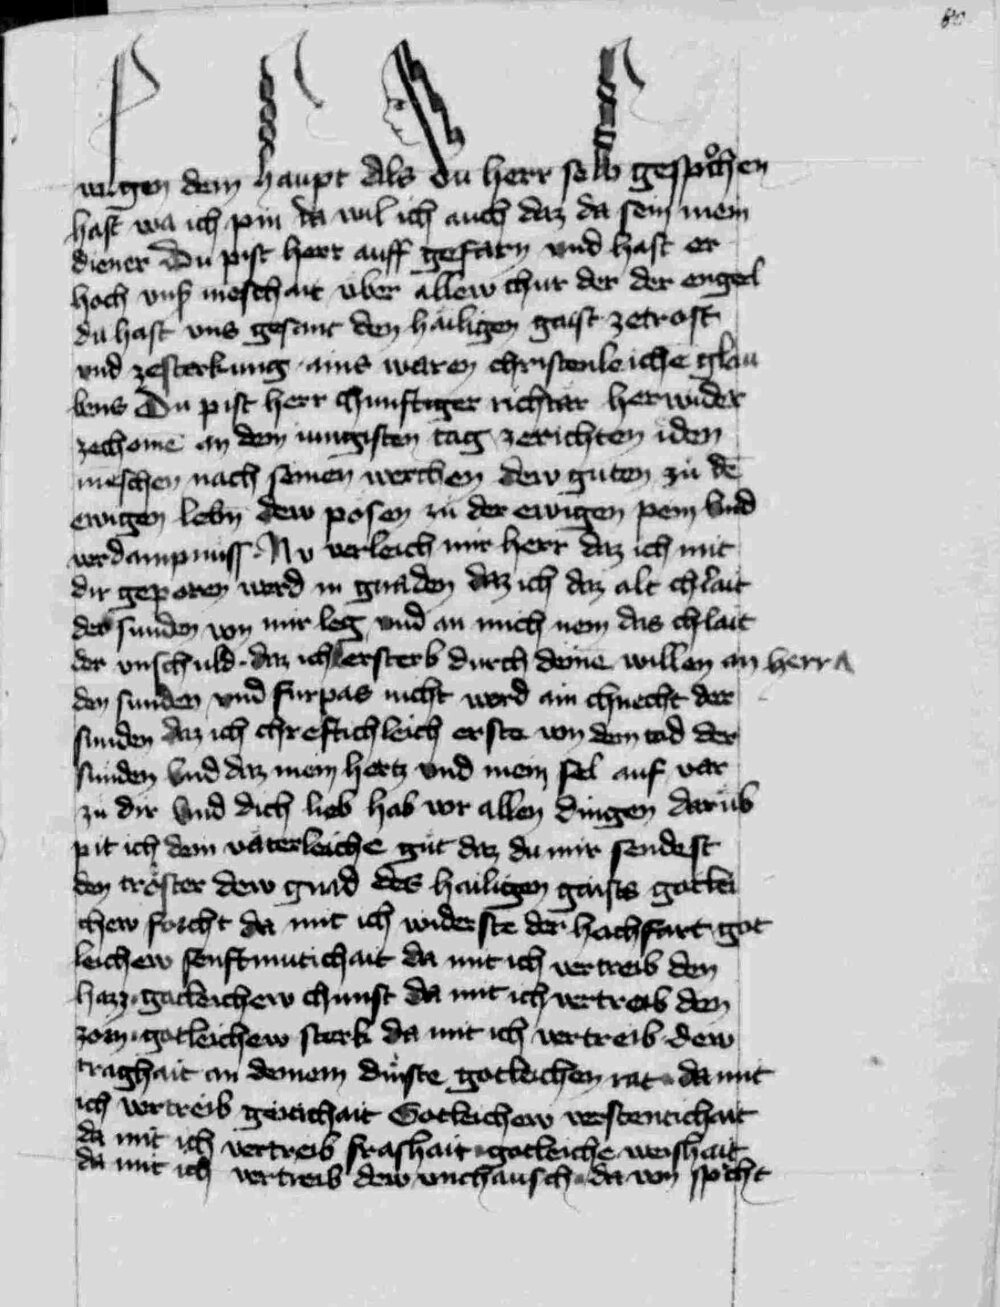 80
wirgen dem haupt Als du herr selb gesprochen
hast wa ich pin da wil ich auch daz da sein mein
diener Du pist herr auff gefarn vnd hast er
hoch vnß meschait vber allew chür der der engel
du hast vns gesant den hailigen gaist zetrost
vnd zesterkung ains waren christenleichē glau
bens Du pist herr chunftiger richtär herwider
zechomē an dem iungisten tag zerichten iden
meschen nach seinen werchen dew guten zu dē
ewigen lebn dew pösen zu der ewigen pein vnd
verdampnuss Nv verleich mir herr daz ich mit
dir geporen werd in gnaden daz ich daz alt chlait
der sunden von mir leg vnd an mich nem das chlait
der vnschuld daz ich ersterb durch deinē willen an herr
den sunden vnd furpas nicht werd ain chnecht der
sunden daz ich chreftichleich erste von dem tod der
sunden vnd daz mein hertz vnd mein sel auf var
zu dir vnd dich lieb hab vor allen dingen darüb
pit ich dein väterleiche güt daz du mir sendest
den tröster dew gnad des hailigen gaists gotlei
chew forcht da mit ich widerste der hochfart got
leichew senftmutichait da mit ich vertreib den
hazz gotleichew chunst da mit ich vertreib den
zorn gotleichew sterk da mit ich vertreib dew
traghait an deinem dinste gotleichen rat da mit
ich vertreib geitichait Gotleichew verstentichait
da mit ich vertreib frashait gotleiche weishait
da mit ich vertreib dew vnchausch da von spricht